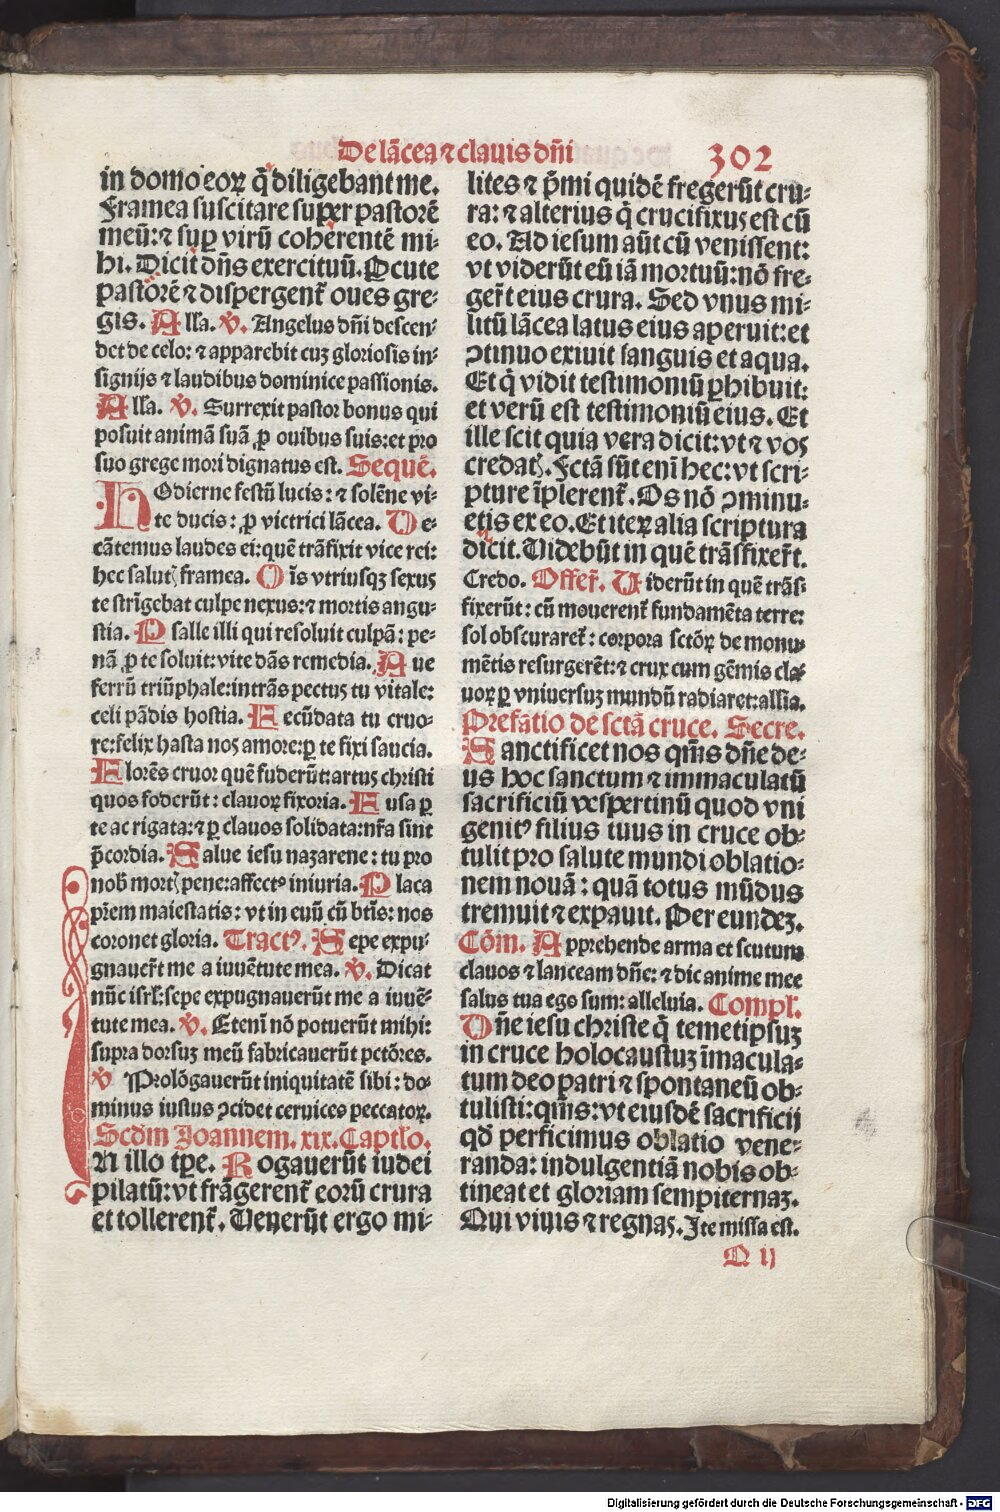 De lãcea ⁊ clauis dñi 302
in domo eoꝝ q̃ diligebant me.
Framea suscitare super pastorē
meũ: ⁊ suꝑ virũ coherentē mi-
hi. Dicit dñs exercituũ. Percute
pastorē ⁊ dispergent̃ oues gre-
gis. Alľa. ℣. Angelus dñi descen-
det de celo: ⁊ apparebit cuʒ gloriosis in-
signijs ⁊ laudibus dominice passionis.
Alľa. ℣. Surrexit pastor bonus qui
posuit animã suã ꝓ ouibus suis: et pro
suo grege mori dignatus est. Sequē.
HOdierne festũ lucis: ⁊ solēne vi-
te ducis: ꝓ victrici lãcea. De-
cãtemus laudes ei: quē trãfixit vice rei:
hec salutꝭ framea. Oĩs vtriusqʒ sexus
te strĩgebat culpe nexus: ⁊ mortis angu-
stia. Psalle illi qui resoluit culpã: pe-
nã ꝓ te soluit: vite dãs remedia. Aue
ferrũ triũphale: intrãs pectus tu vitale:
celi pãdis hostia. Fecũdata tu cruo-
re: felix hasta nos amore: ꝑ te fixi saucia.
Florēs cruor quē fuderũt: artus christi
quos foderũt: clauoꝝ fixoria. Fusa ꝑ
te ac rigata: ⁊ ꝑ clauos solidata: nr̃a sint
p̃cordia. Salue iesu nazarene: tu pro
nob̃ mortꝭ pene: affectꝰ iniuria. Placa
pr̃em maiestatis: vt in euũ cũ btĩs: nos
coronet gloria. Tractꝰ. Sepe expu-
gnauer̃t me a iuuētute mea. ℣. Dicat
nũc isrl̃: sepe expugnauerũt me a iuuē-
tute mea. ℣. Etenĩ nõ potuerũt mihi:
supra dorsuʒ meũ fabricauerũt pctõres.
℣ Prolõgauerũt iniquitatē sibi: do-
minus iustus ꝯcidet ceruices peccatoꝝ.
Scdm̃ Joannem. xix. Captľo.
IN illo tꝑe. Rogauerũt iudei
pilatũ: vt frãgerent̃ eorũ crura
et tollerent̃. Venerũt ergo mi-
lites ⁊ p̃mi quidē fregerũt cru-
ra: ⁊ alterius q̃ crucifixus est cũ
eo. Ad iesum aũt cũ venissent:
vt viderũt eũ iã mortuũ: nõ fre-
ger̃t eius crura. Sed vnus mi-
litũ lãcea latus eius aperuit: et
ꝯtinuo exiuit sanguis et aqua.
Et q̃ vidit testimoniũ ꝑhibuit:
et verũ est testimoniũ eius. Et
ille scit quia vera dicit: vt ⁊ vos
credatꝭ. Fctã sũt enĩ hec: vt scri-
pture ĩplerent̃. Os nõ ꝯminu-
etis ex eo. Et iteꝝ alia scriptura
dicit. Videbũt in quē trãsfixer̃t.
Credo. Offer̃. Viderũt in quē trãs-
fixerũt: cũ mouerent̃ fundamēta terre:
sol obscuraret̃: corpora sctõꝝ de monu-
mētis resurgerēt: ⁊ crux cum gēmis cla-
uoꝝ ꝑ vniuersuʒ mundũ radiaret: allľa.
Prefatio de sctã cruce. Secre.
Sanctificet nos qm̃s dñe de-
us hoc sanctum ⁊ immaculatũ
sacrificiũ vespertinũ quod vni
genitꝰ filius tuus in cruce ob-
tulit pro salute mundi oblatio-
nem nouã: quã totus mũdus
tremuit ⁊ expauit. Per eundeʒ.
Cõm. Apprehende arma et scutum
clauos ⁊ lanceam dñe: ⁊ dic anime mee
salus tua ego sum: alleluia. Compl̃.
Dñe iesu christe q̃ temetipsuʒ
in cruce holocaustuʒ ĩmacula-
tum deo patri ⁊ spontaneũ ob-
tulisti: qm̃s: vt eiusdē sacrificij
qđ perficimus oblatio vene-
randa: indulgentiã nobis ob-
tineat et gloriam sempiternaʒ.
Qui viuis ⁊ regnas. Ite missa est.
Q ij
Digitalisierung gefördert durch die Deutsche Forschungsgemeinschaft - DFG